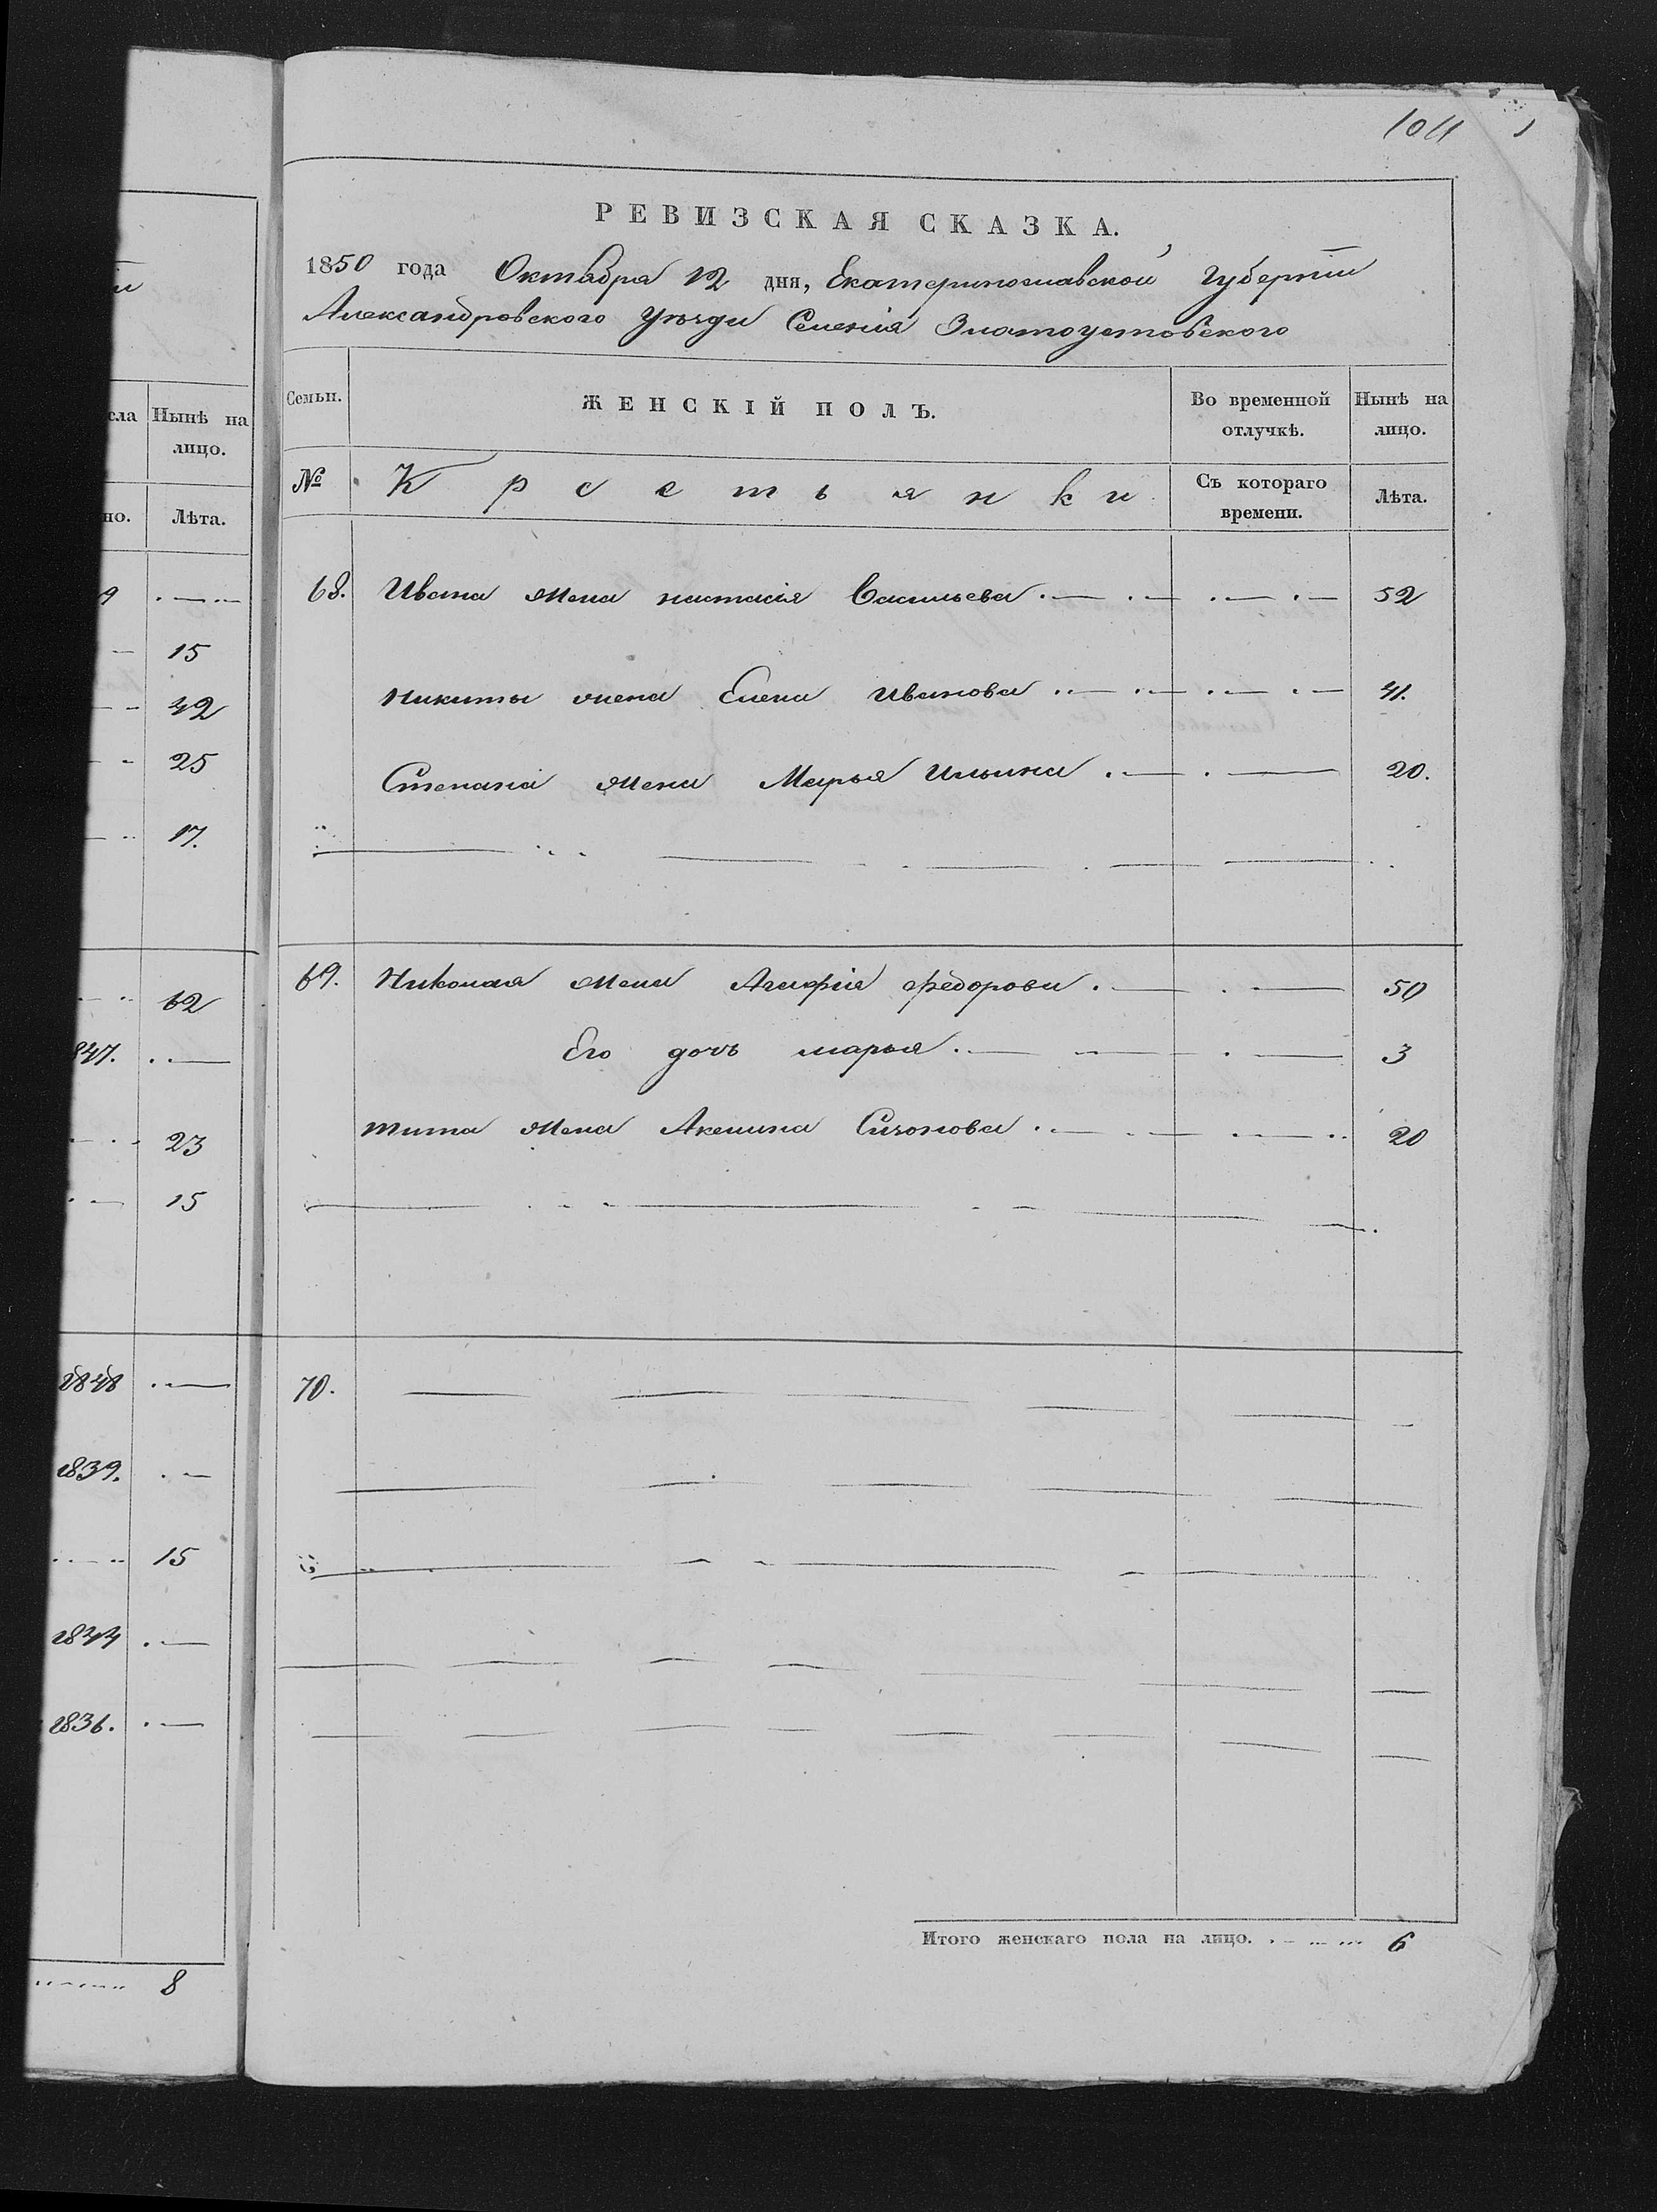 РЕВИЗСКАЯ СКАЗКА.
1850 года Октября 12 дня, Екатеринославской Губернiи
Александровского Уѣзда Селенiя Златоустовского
Семьи. ЖЕНСКIЙ ПОЛЪ. Во временной отлучкѣ. Нынѣ на лицо.
№ Крестьянки Съ котораго времени. Лѣта.
68. Ивана жена настасiя Васильева 52
Никиты жена Елена Иванова 41.
Степана жена Марья Ильина 20.
69. Николая жена Агафiя Федорова 50
Его дочь марья 3
тита жена Акелина Сизонова 20
70.
Итого женскаго пола на лицо. 6
Нынѣ на
лицо.
но. Лѣта.
9
15
42
25
17.
62
847.
23
15
1848
1839.
15
1844
1836.
8